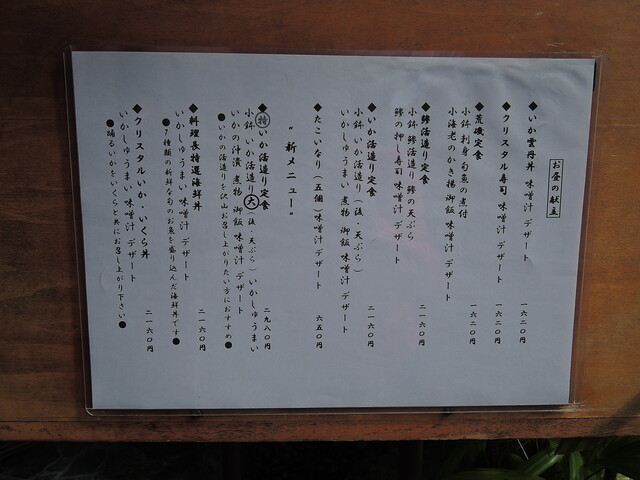 お昼の献立
◆いか雲丹丼 味噌汁 デザート 一六二〇円
◆クリスタル寿司 味噌汁 デザート 一六二〇円
◆荒磯定食 一六二〇円
小鉢 刺身 旬魚の煮付
小海老のかき揚 御飯 味噌汁 デザート
◆鯵活造り定食 二一六〇円
小鉢 鯵活造り 鯵の天ぷら
鯵の押し寿司 味噌汁 デザート
◆いか活造り定食 二一六〇円
小鉢 いか活造り(後・天ぷら)
いかしゅうまい 煮物 御飯 味噌汁 デザート
◆たこいなり(五個)味噌汁 デザート 六五〇円
"新メニュー"
◆特いか活造り定食 二九八〇円
小鉢 いか活造り大(後・天ぷら)いかしゅうまい
いかの汁漬 煮物 御飯 味噌汁 デザート
●いかの活造りを沢山お召し上がりたい方におすすめ●
◆料理長特選海鮮丼 二一六〇円
いかしゅうまい 味噌汁 デザート
●7種類の新鮮な旬のお魚を盛り込んだ海鮮丼です●
◆クリスタルいか・いくら丼 二一六〇円
いかしゅうまい 味噌汁 デザート
●踊るいかをいくらと共にお召し上がり下さい●